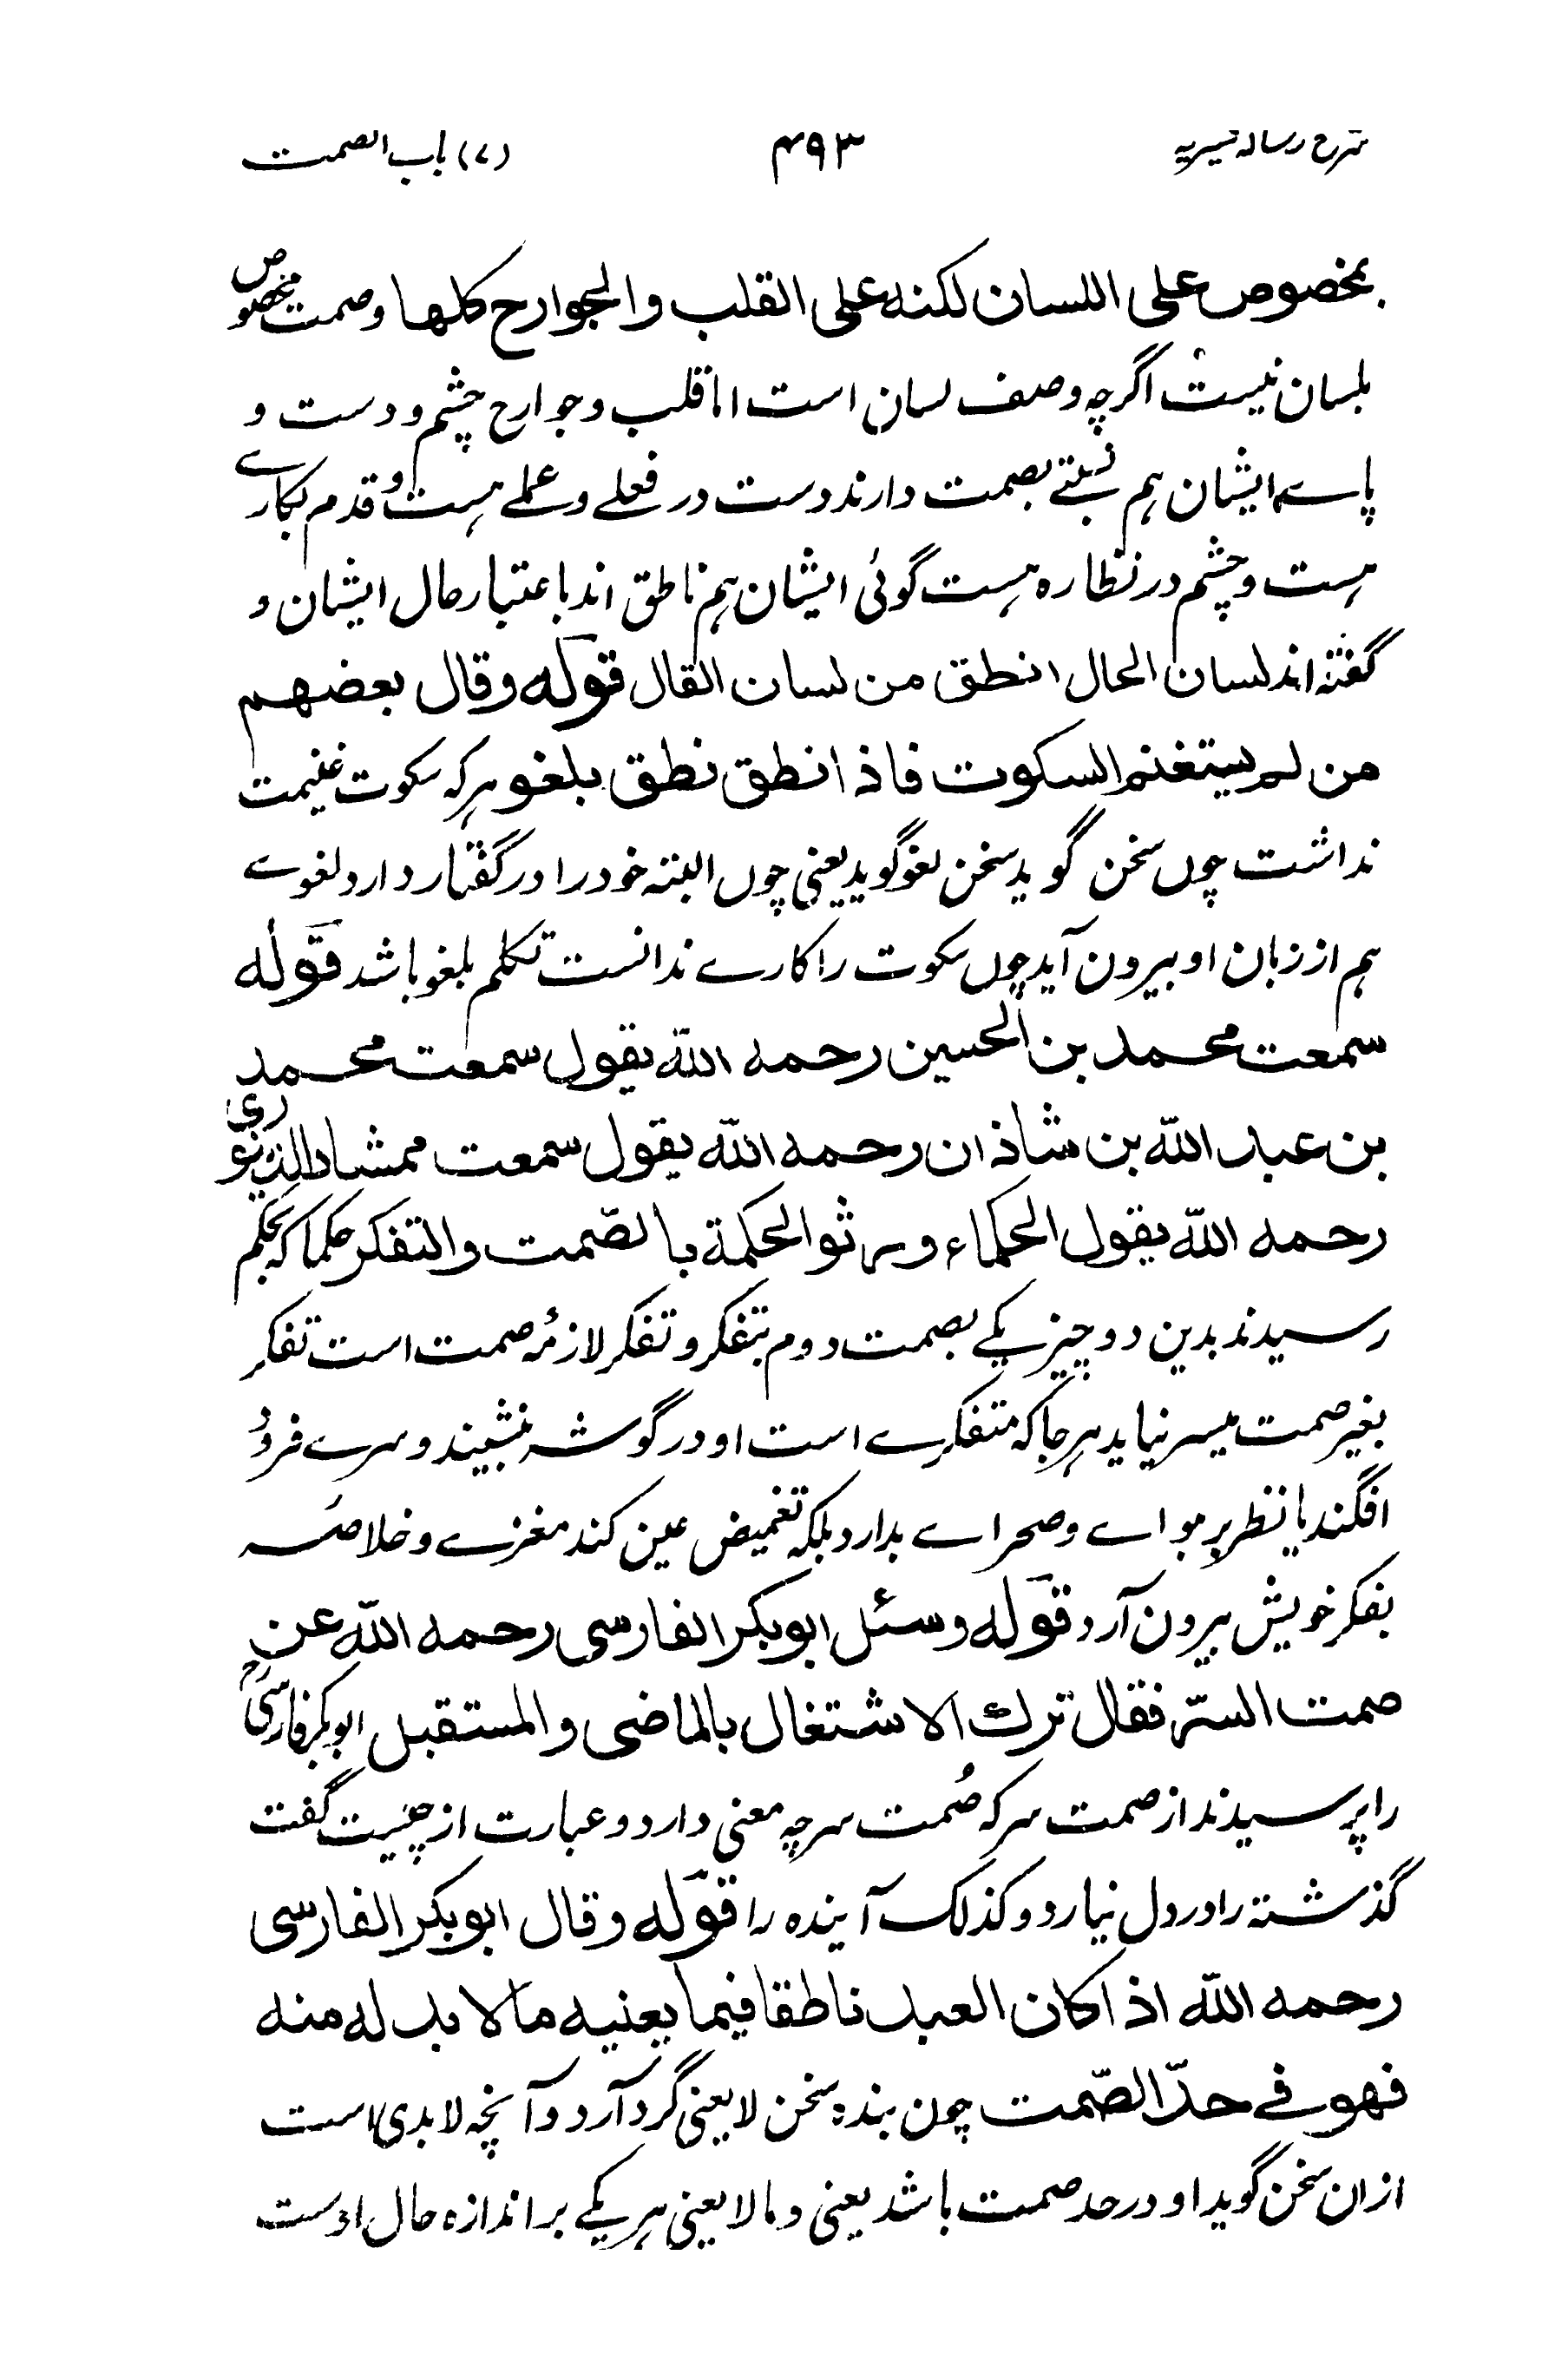 شرح رسالہ قشیریہ ۴۹۳ (۷) باب الصمت
بمخصوص علی اللسان لکنه علی القلب والجوارح کلها وصمت مخصوص
بلسان نیست اگرچہ وصف لسان است اما قلب وجوارح چشم و دست و
پاے ایشان ہم نسبتے بصمت دارند دست در فعلے و عملے ہست و قدم بکارے
ہست و چشم در نظارہ ہست گوئی ایشان ہم ناطق اند باعتبار حال ایشان و
گفتہ اند لسان الحال انطق من لسان القال قوله وقال بعضهم
من لم یستغنم السکوت فاذا نطق نطق بلغو ہرکہ سکوت غنیمت
نداشت چوں سخن گوید سخن لغو گوید یعنی چوں البتہ خود را در گفتار دارد لغوے
ہم از زبان او بیرون آید چوں سکوت را کارے ندانست تکلم بلغو باشد قوله
سمعت محمد بن الحسین رحمه الله یقول سمعت محمد
بن عبد الله بن شاذان رحمه الله یقول سمعت ممشاد الدینوری
رحمه الله یقول الحکماء ورثوا الحکمة بالصّمت والتفکر حکما کہ بحکم
رسیدند بدین دو چیز یکے بصمت دوم بتفکر و تفکر لازمۂ صمت است تفکر
بغیر صمت میسر نیاید ہرجا کہ متفکرے است او در گوشہ بنشیند و سرے فرود
افگند یا نظر بر ہواے و صحراے بدارد بلکہ تغمیض عین کند مغزے و خلاصۂ
بفکر خویش بیرون آرد قوله وسئل ابوبکر الفارسی رحمه الله عن
صمت السرّ فقال ترك الاشتغال بالماضی والمستقبل ابوبکر فارسیؒ
را پرسیدند از صمت سر کہ صُمت سر چہ معنی دارد و عبارت از چیست گفت
گذشتہ را در دل نیارد و کذلک آیندہ را قوله وقال ابوبکر الفارسی
رحمه الله اذا کان العبد ناطقا فیما یعنیه مالا بد له منه
فهو فی حدّ الصّمت چون بندہ سخن لا یعنی گرد آرد و آنچہ لا بدی است
ازان سخن گوید او در حد صمت باشد یعنی و مالا یعنی ہر یکے بر اندازہ حال اوست